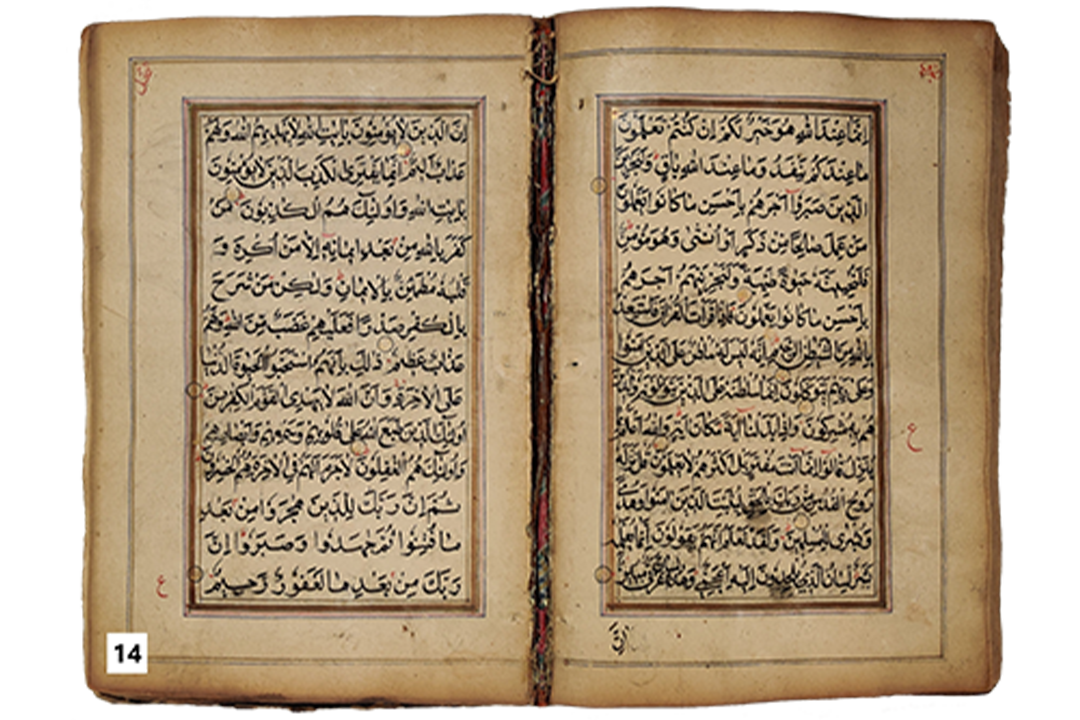 اِنَّمَا عِنْدَ اللّٰهِ هُوَ خَيْرٌ لَّكُمْ اِنْ كُنْتُمْ تَعْلَمُوْنَ
مَا عِنْدَكُمْ يَنْفَدُ وَمَا عِنْدَ اللّٰهِ بَاقٍ وَلَنَجْزِيَنَّ
الَّذِيْنَ صَبَرُوْا اَجْرَهُمْ بِاَحْسَنِ مَا كَانُوْا يَعْمَلُوْنَ
مَنْ عَمِلَ صَالِحًا مِّنْ ذَكَرٍ اَوْ اُنْثٰى وَهُوَ مُؤْمِنٌ
فَلَنُحْيِيَنَّهٗ حَيٰوةً طَيِّبَةً وَلَنَجْزِيَنَّهُمْ اَجْرَهُمْ
بِاَحْسَنِ مَا كَانُوْا يَعْمَلُوْنَ فَاِذَا قَرَاْتَ الْقُرْاٰنَ فَاسْتَعِذْ
بِاللّٰهِ مِنَ الشَّيْطٰنِ الرَّجِيْمِ اِنَّهٗ لَيْسَ لَهٗ سُلْطٰنٌ عَلَى الَّذِيْنَ اٰمَنُوْا
وَعَلٰى رَبِّهِمْ يَتَوَكَّلُوْنَ اِنَّمَا سُلْطٰنُهٗ عَلَى الَّذِيْنَ يَتَوَلَّوْنَهٗ وَالَّذِيْنَ
هُمْ بِهٖ مُشْرِكُوْنَ وَاِذَا بَدَّلْنَا اٰيَةً مَّكَانَ اٰيَةٍ وَّاللّٰهُ اَعْلَمُ بِمَا
يُنَزِّلُ قَالُوْا اِنَّمَا اَنْتَ مُفْتَرٍ بَلْ اَكْثَرُهُمْ لَا يَعْلَمُوْنَ قُلْ نَزَّلَهٗ
رُوْحُ الْقُدُسِ مِنْ رَّبِّكَ بِالْحَقِّ لِيُثَبِّتَ الَّذِيْنَ اٰمَنُوْا وَهُدًى
وَّبُشْرٰى لِلْمُسْلِمِيْنَ وَلَقَدْ نَعْلَمُ اَنَّهُمْ يَقُوْلُوْنَ اِنَّمَا يُعَلِّمُهٗ
بَشَرٌ لِسَانُ الَّذِيْ يُلْحِدُوْنَ اِلَيْهِ اَعْجَمِيٌّ وَّهٰذَا لِسَانٌ عَرَبِيٌّ مُّبِيْنٌ
ع
اِنَّ
اِنَّ الَّذِيْنَ لَا يُؤْمِنُوْنَ بِاٰيٰتِ اللّٰهِ لَا يَهْدِيْهِمُ اللّٰهُ وَلَهُمْ
عَذَابٌ اَلِيْمٌ اِنَّمَا يَفْتَرِى الْكَذِبَ الَّذِيْنَ لَا يُؤْمِنُوْنَ
بِاٰيٰتِ اللّٰهِ وَاُولٰئِكَ هُمُ الْكٰذِبُوْنَ مَنْ
كَفَرَ بِاللّٰهِ مِنْ بَعْدِ اِيْمَانِهٖ اِلَّا مَنْ اُكْرِهَ وَ
قَلْبُهٗ مُطْمَئِنٌّ بِالْاِيْمَانِ وَلٰكِنْ مَّنْ شَرَحَ
بِالْكُفْرِ صَدْرًا فَعَلَيْهِمْ غَضَبٌ مِّنَ اللّٰهِ وَلَهُمْ
عَذَابٌ عَظِيْمٌ ذٰلِكَ بِاَنَّهُمُ اسْتَحَبُّوا الْحَيٰوةَ الدُّنْيَا
عَلَى الْاٰخِرَةِ وَاَنَّ اللّٰهَ لَا يَهْدِى الْقَوْمَ الْكٰفِرِيْنَ
اُولٰئِكَ الَّذِيْنَ طَبَعَ اللّٰهُ عَلٰى قُلُوْبِهِمْ وَسَمْعِهِمْ وَاَبْصَارِهِمْ
وَاُولٰئِكَ هُمُ الْغٰفِلُوْنَ لَا جَرَمَ اَنَّهُمْ فِى الْاٰخِرَةِ هُمُ الْخٰسِرُوْنَ
ثُمَّ اِنَّ رَبَّكَ لِلَّذِيْنَ هَاجَرُوْا مِنْ بَعْدِ
مَا فُتِنُوْا ثُمَّ جٰهَدُوْا وَصَبَرُوْا اِنَّ
رَبَّكَ مِنْ بَعْدِهَا لَغَفُوْرٌ رَّحِيْمٌ
ع
14